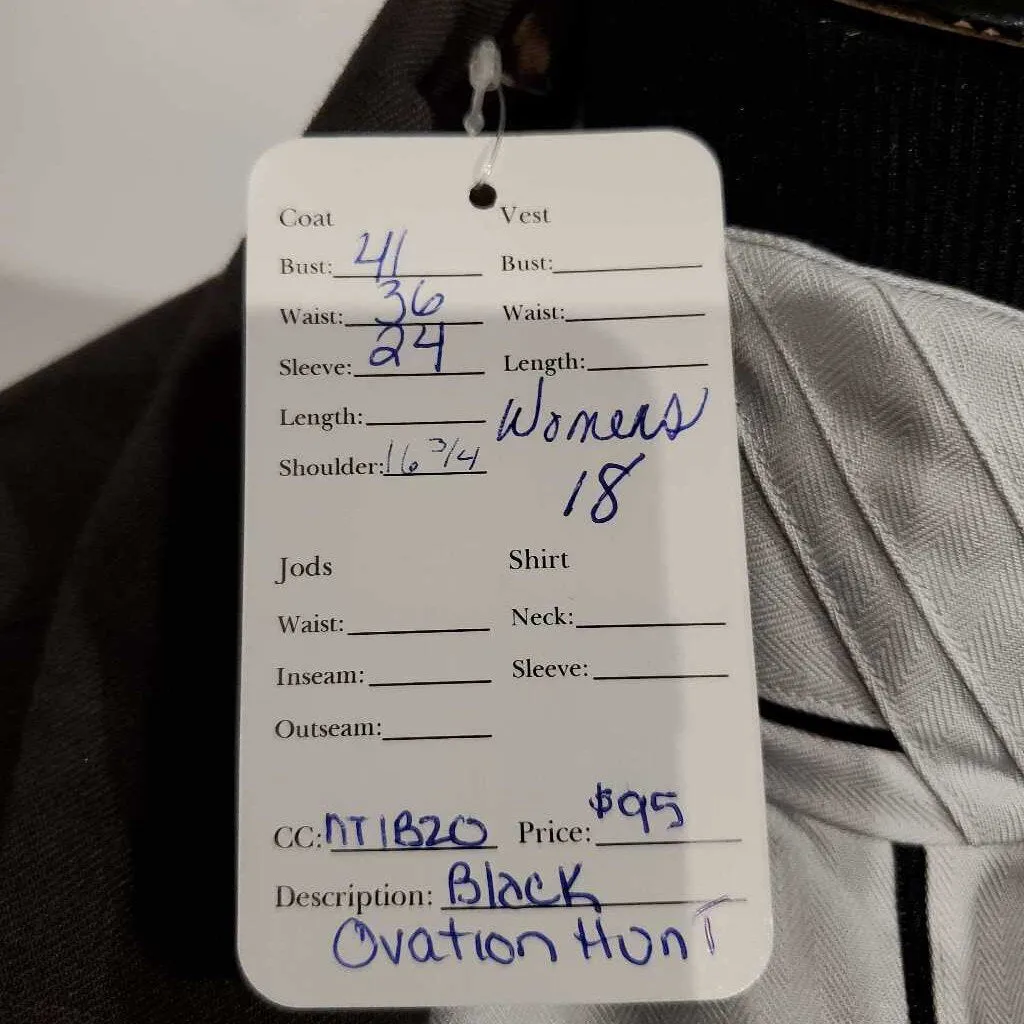 Coat
Bust: 41
Waist: 36
Sleeve: 24
Length:
Shoulder: 16 3/4
Vest
Bust:
Waist:
Length:
Womens
18
Jods
Waist:
Inseam:
Outseam:
Shirt
Neck:
Sleeve:
CC: NT1B20 Price: $95
Description: Black
Ovation Hunt